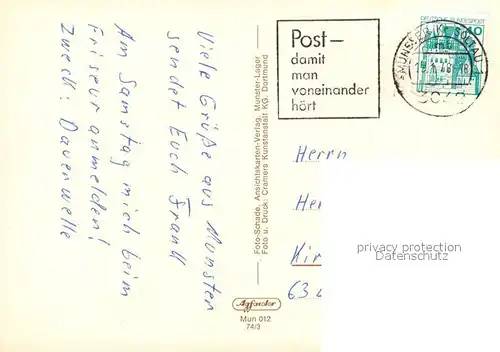 Viele Grüße aus Munster
sendet Euch Frank
Am Samstag mich beim
Friseur anmelden!
Zweck: Dauerwelle
Foto-Schade, Ansichtskarten-Verlag, Munster-Lager
Foto u. Druck: Cramers Kunstanstalt KG, Dortmund
Agfacolor
Mun 012
74/3
Post –
damit
man
voneinander
hört
DEUTSCHE BUNDESPOST
MUNSTER (KR SOLTAU)
Herrn
He
Kir
634
privacy protection
Datenschutz